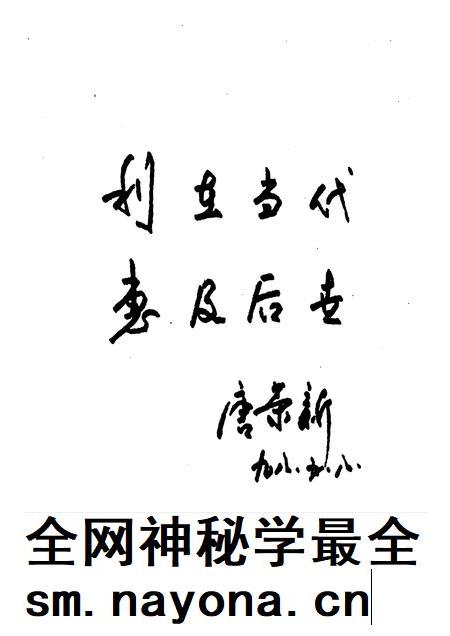 利在当代
惠及后世
唐荣新
九八.九.八.
全网神秘学最全
sm.nayona.cn